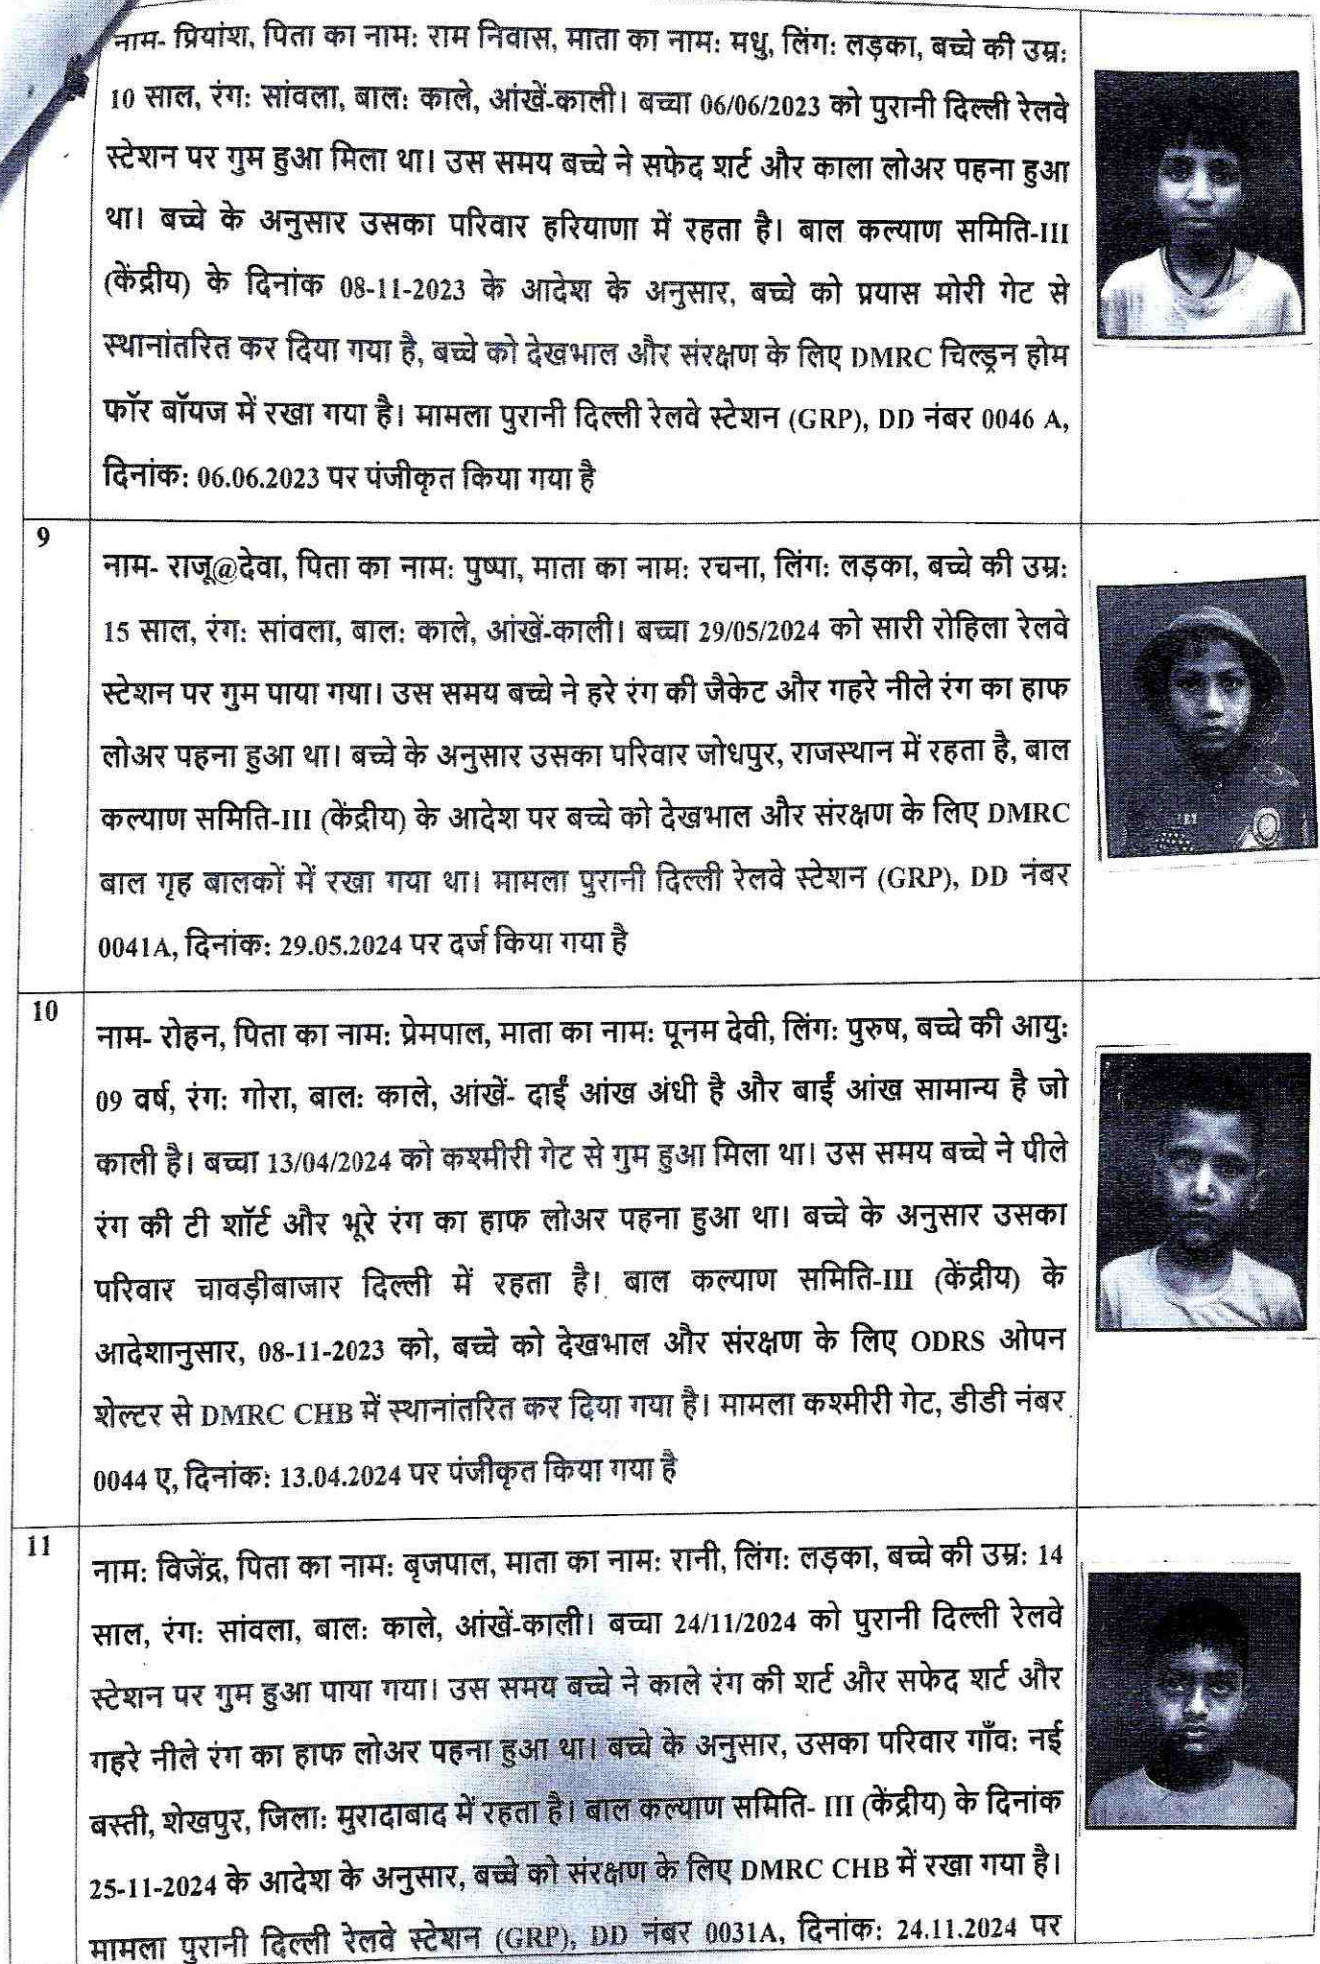 नाम- प्रियांश, पिता का नाम: राम निवास, माता का नाम: मधु, लिंग: लड़का, बच्चे की उम्र:
10 साल, रंग: सांवला, बाल: काले, आंखें-काली। बच्चा 06/06/2023 को पुरानी दिल्ली रेलवे
स्टेशन पर गुम हुआ मिला था। उस समय बच्चे ने सफेद शर्ट और काला लोअर पहना हुआ
था। बच्चे के अनुसार उसका परिवार हरियाणा में रहता है। बाल कल्याण समिति-III
(केंद्रीय) के दिनांक 08-11-2023 के आदेश के अनुसार, बच्चे को प्रयास मोरी गेट से
स्थानांतरित कर दिया गया है, बच्चे को देखभाल और संरक्षण के लिए DMRC चिल्ड्रन होम
फॉर बॉयज में रखा गया है। मामला पुरानी दिल्ली रेलवे स्टेशन (GRP), DD नंबर 0046 A,
दिनांक: 06.06.2023 पर पंजीकृत किया गया है
9
नाम- राजू@देवा, पिता का नाम: पुष्पा, माता का नाम: रचना, लिंग: लड़का, बच्चे की उम्र:
15 साल, रंग: सांवला, बाल: काले, आंखें-काली। बच्चा 29/05/2024 को सारी रोहिला रेलवे
स्टेशन पर गुम पाया गया। उस समय बच्चे ने हरे रंग की जैकेट और गहरे नीले रंग का हाफ
लोअर पहना हुआ था। बच्चे के अनुसार उसका परिवार जोधपुर, राजस्थान में रहता है, बाल
कल्याण समिति-III (केंद्रीय) के आदेश पर बच्चे को देखभाल और संरक्षण के लिए DMRC
बाल गृह बालकों में रखा गया था। मामला पुरानी दिल्ली रेलवे स्टेशन (GRP), DD नंबर
0041A, दिनांक: 29.05.2024 पर दर्ज किया गया है
10
नाम- रोहन, पिता का नाम: प्रेमपाल, माता का नाम: पूनम देवी, लिंग: पुरुष, बच्चे की आयु:
09 वर्ष, रंग: गोरा, बाल: काले, आंखें- दाईं आंख अंधी है और बाईं आंख सामान्य है जो
काली है। बच्चा 13/04/2024 को कश्मीरी गेट से गुम हुआ मिला था। उस समय बच्चे ने पीले
रंग की टी शॉर्ट और भूरे रंग का हाफ लोअर पहना हुआ था। बच्चे के अनुसार उसका
परिवार चावड़ीबाजार दिल्ली में रहता है। बाल कल्याण समिति-III (केंद्रीय) के
आदेशानुसार, 08-11-2023 को, बच्चे को देखभाल और संरक्षण के लिए ODRS ओपन
शेल्टर से DMRC CHB में स्थानांतरित कर दिया गया है। मामला कश्मीरी गेट, डीडी नंबर
0044 ए, दिनांक: 13.04.2024 पर पंजीकृत किया गया है
11
नाम: विजेंद्र, पिता का नाम: बृजपाल, माता का नाम: रानी, लिंग: लड़का, बच्चे की उम्र: 14
साल, रंग: सांवला, बाल: काले, आंखें-काली। बच्चा 24/11/2024 को पुरानी दिल्ली रेलवे
स्टेशन पर गुम हुआ पाया गया। उस समय बच्चे ने काले रंग की शर्ट और सफेद शर्ट और
गहरे नीले रंग का हाफ लोअर पहना हुआ था। बच्चे के अनुसार, उसका परिवार गाँव: नई
बस्ती, शेखपुर, जिला: मुरादाबाद में रहता है। बाल कल्याण समिति- III (केंद्रीय) के दिनांक
25-11-2024 के आदेश के अनुसार, बच्चे को संरक्षण के लिए DMRC CHB में रखा गया है।
मामला पुरानी दिल्ली रेलवे स्टेशन (GRP), DD नंबर 0031A, दिनांक: 24.11.2024 पर